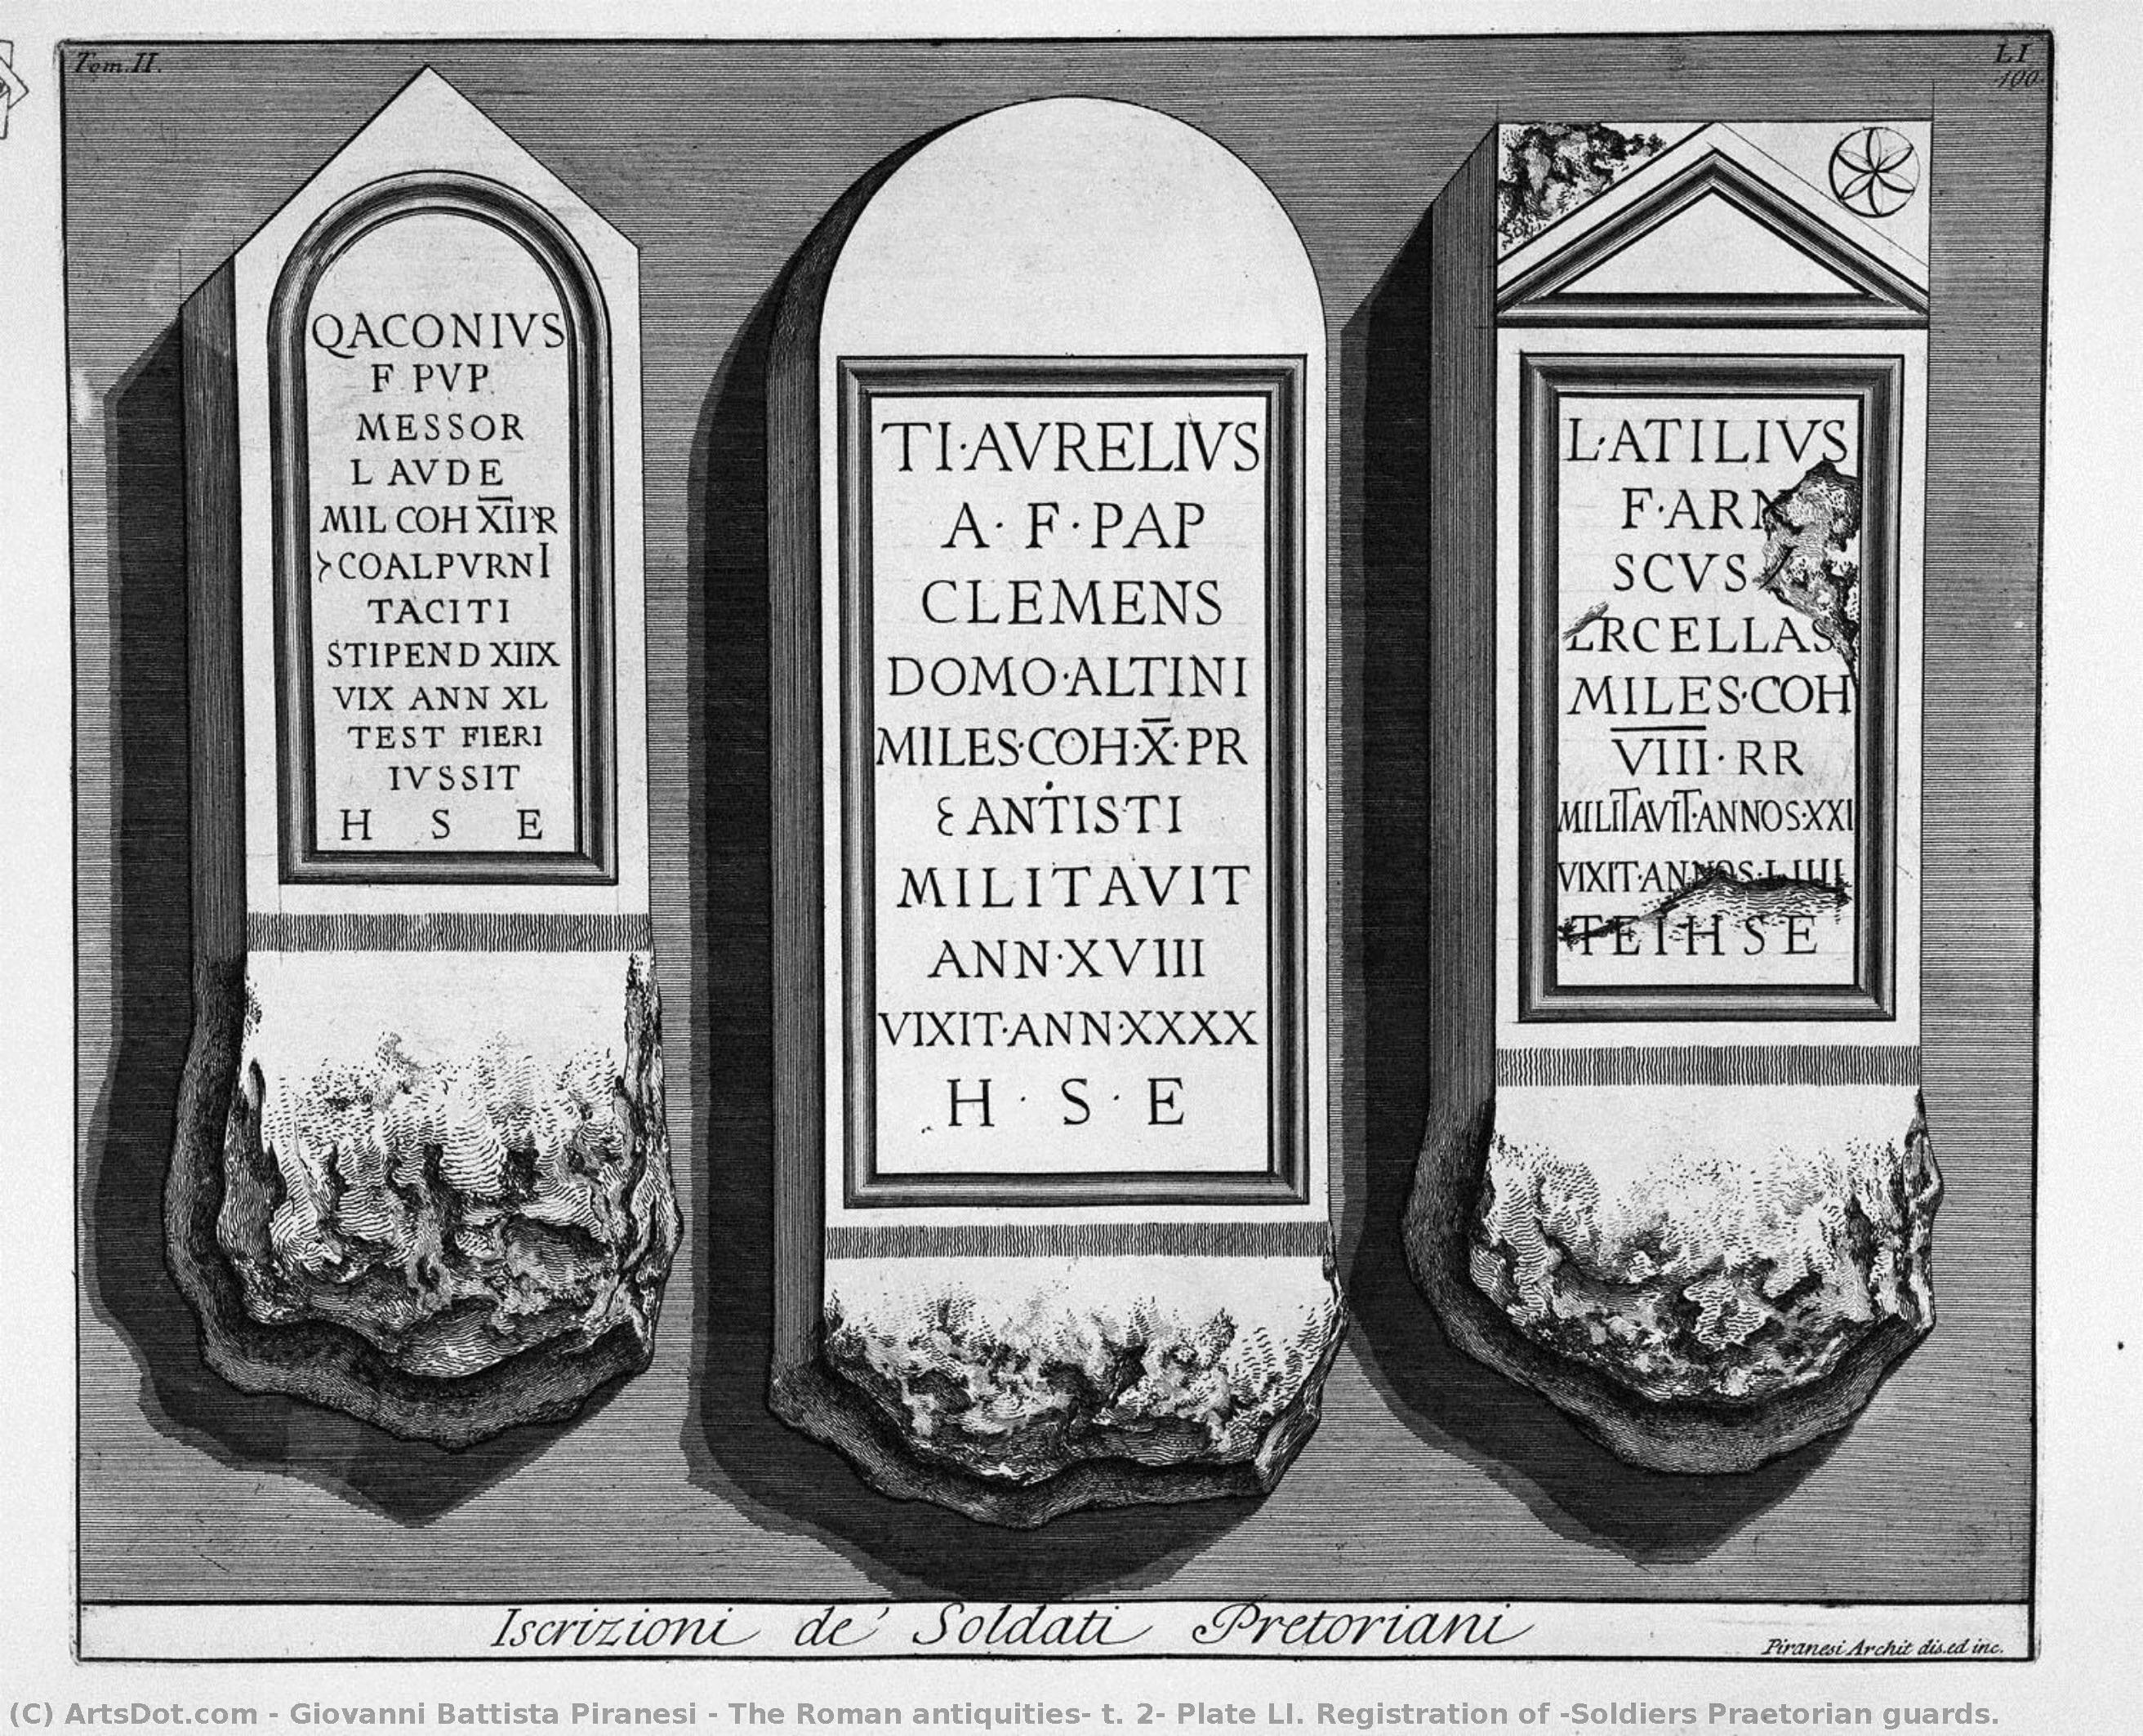 Tom. II.
LI
100
QACONIVS
F PVP
MESSOR
LAVDE
MIL COH X̅I̅I̅ R
COALPVRNI
TACITI
STIPEND XIIX
VIX ANN XL
TEST FIERI
IVSSIT
H S E
TI·AVRELIVS
A·F·PAP
CLEMENS
DOMO·ALTINI
MILES·COH·X̅·PR
ƐANTISTI
MILITAVIT
ANN·XVIII
VIXIT·ANN·XXXX
H·S·E
L·ATILIVS
F·ARN
SCVS
ERCELLAS
MILES·COH
V̅I̅I̅I̅·RR
MILITAVIT·ANNOS·XXI
VIXIT·ANNOS·LIIII
TEIHSE
Iscrizioni de' Soldati Pretoriani
Piranesi Archit dis. ed inc.
(C) ArtsDot.com - Giovanni Battista Piranesi - The Roman antiquities- t. 2- Plate LI. Registration of -Soldiers Praetorian guards.